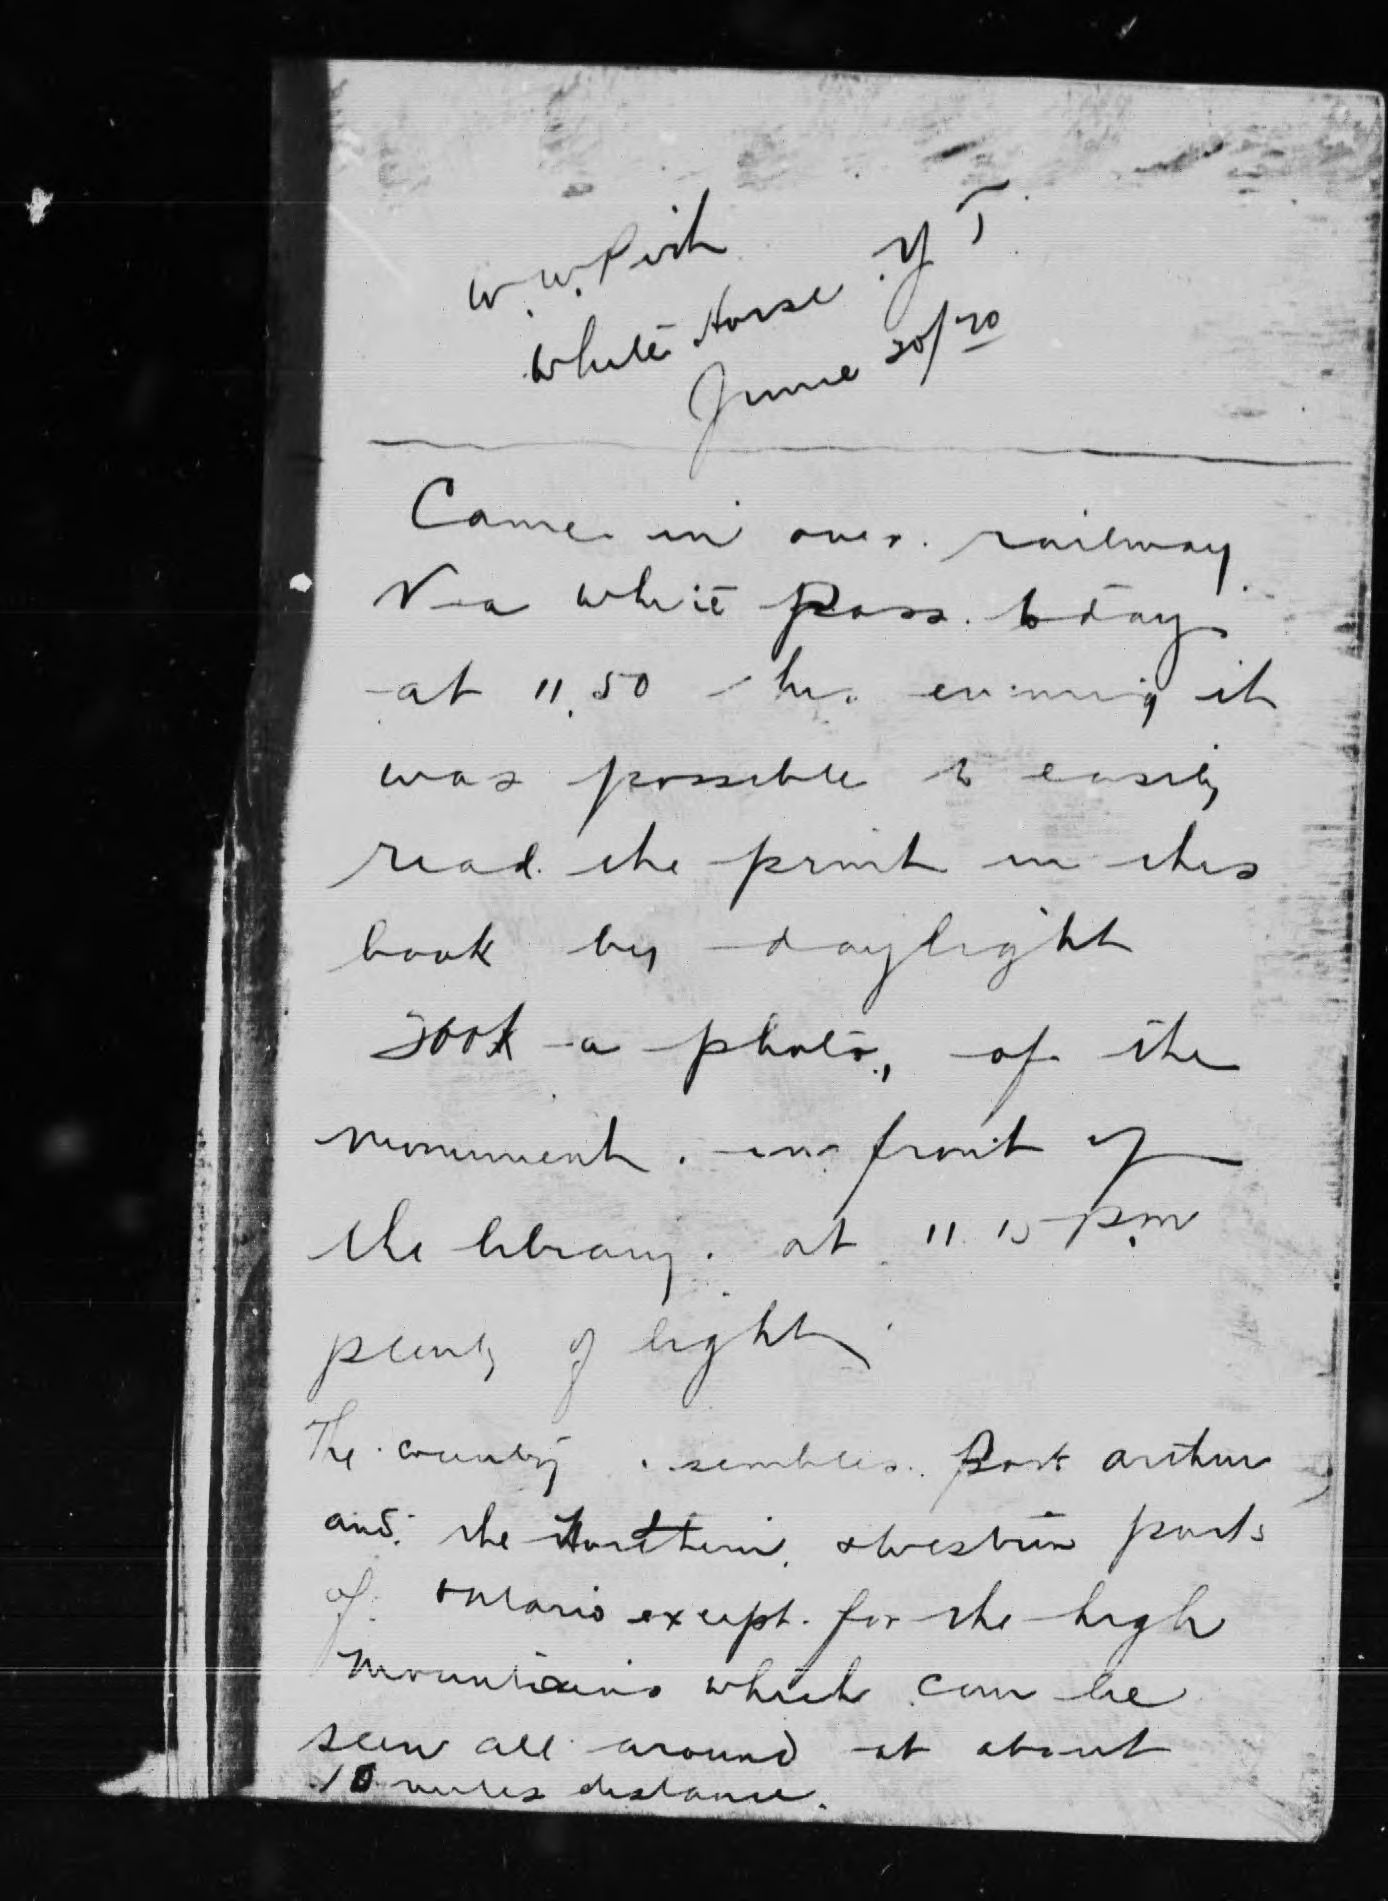 W. W.
White Horse Y T
June 20/20
Came in over railway
Via White Pass today
at 11.50 this evening it
was possible to easily
read the print in this
book by daylight
Took a photo, of the
monument in front of
the library. at 11.15 pm
plenty of light
The country resembles Port Arthur
and the Northern & Western parts
of Ontario except for the high
mountains which can be
seen all around at about
10 miles distance.